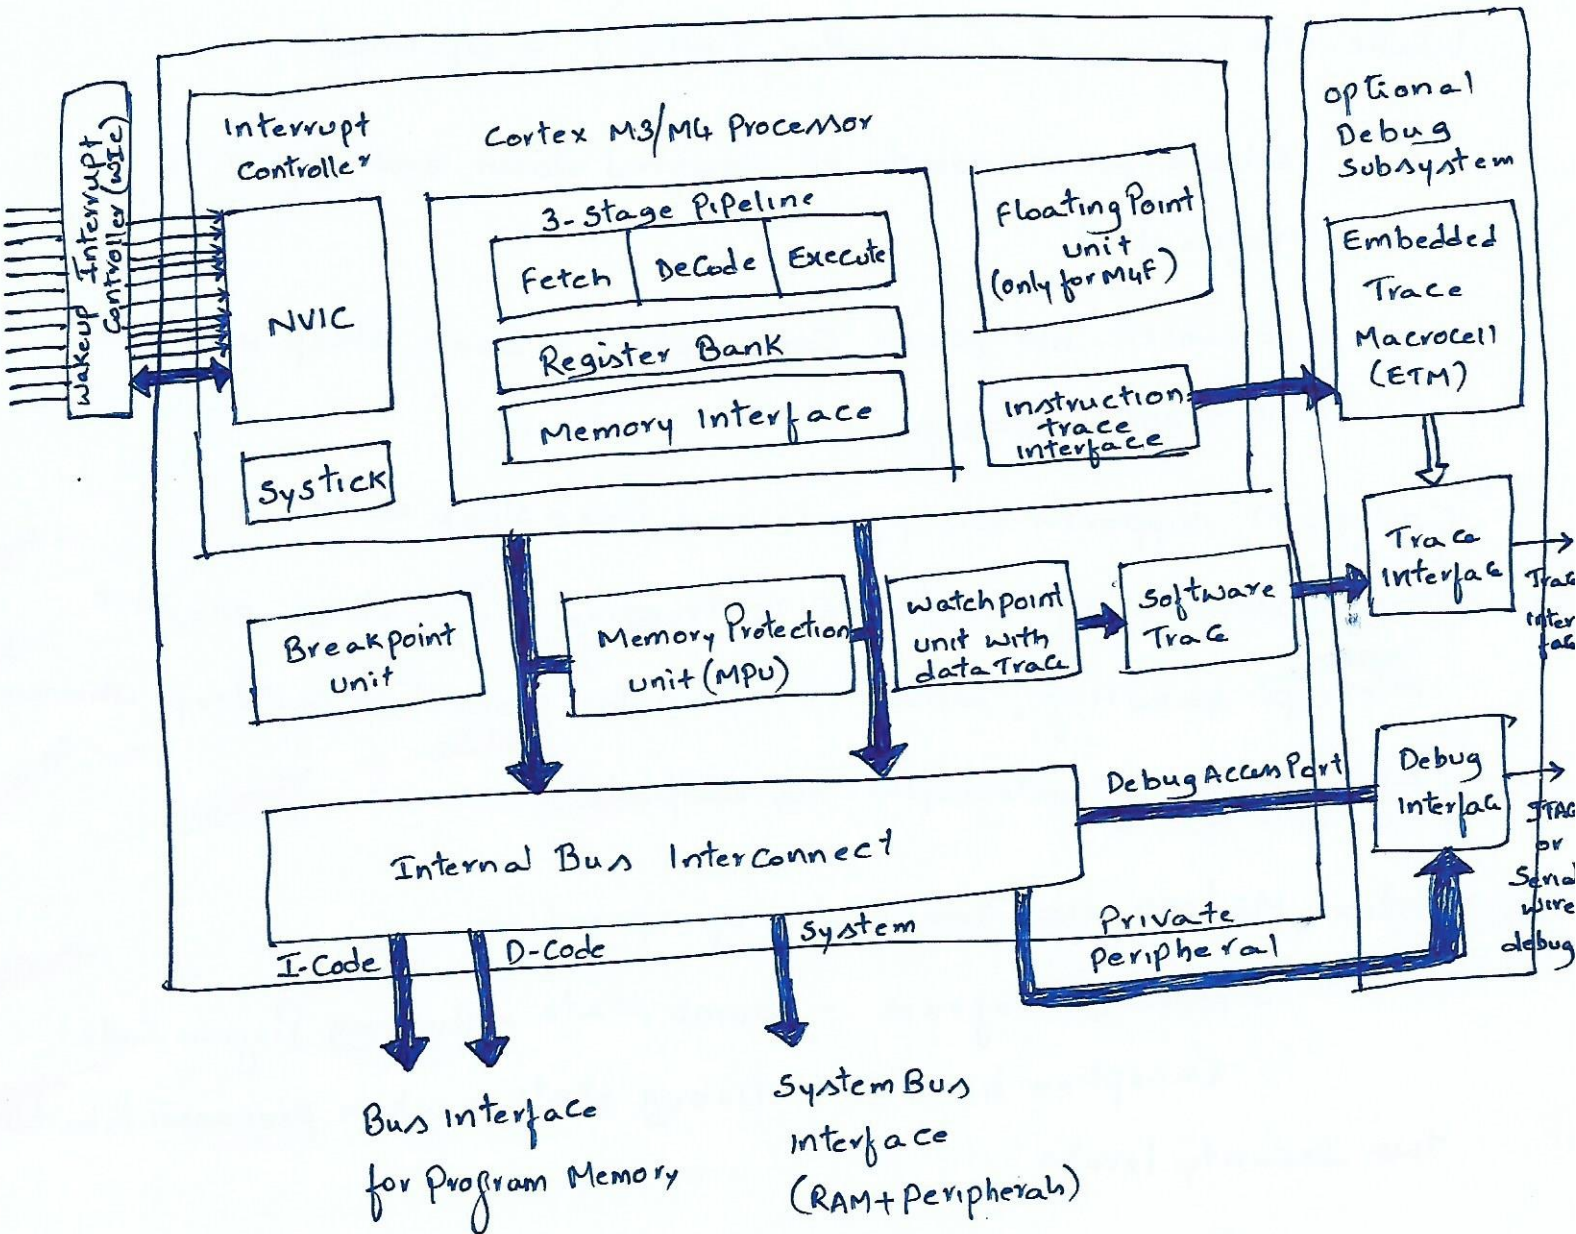 Wakeup Interrupt
Controller (WIC)
Interrupt
Controller
Cortex M3/M4 Processor
NVIC
Systick
3-Stage Pipeline
Fetch
DeCode
Execute
Register Bank
Memory Interface
Floating Point
unit
(only for M4F)
Instruction
trace
interface
optional
Debug
Subsystem
Embedded
Trace
Macrocell
(ETM)
Trace
Interface
Trac
Inter
fac
Breakpoint
unit
Memory Protection
unit (MPU)
Watchpoint
unit with
data Trace
Software
Trace
Debug Access Port
Debug
Interface
JTAG
or
Serial
wire
debug
Internal Bus Interconnect
I-Code
D-Code
System
Private
Peripheral
Bus Interface
for Program Memory
System Bus
Interface
(RAM + Peripherals)